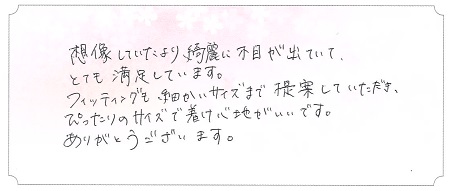 想像していたより、綺麗に木目が出ていて、
とても満足しています。
フィッティングも細かいサイズまで提案していただき、
ぴったりのサイズで着け心地がいいです。
ありがとうございます。